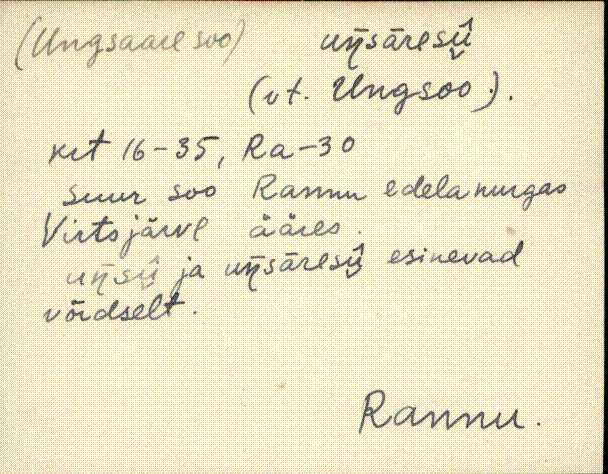 (Ungsaare soo) uŋ̄sāresū̬̂
(vt. Ungsoo.).
krt 16-35, Ra-30
Suur soo Rannu edelanurgas
Virtsjärve ääres.
uŋ̄sū̬̂ ja uŋ̄sāresū̬̂ esinevad
võrdselt.
Rannu.